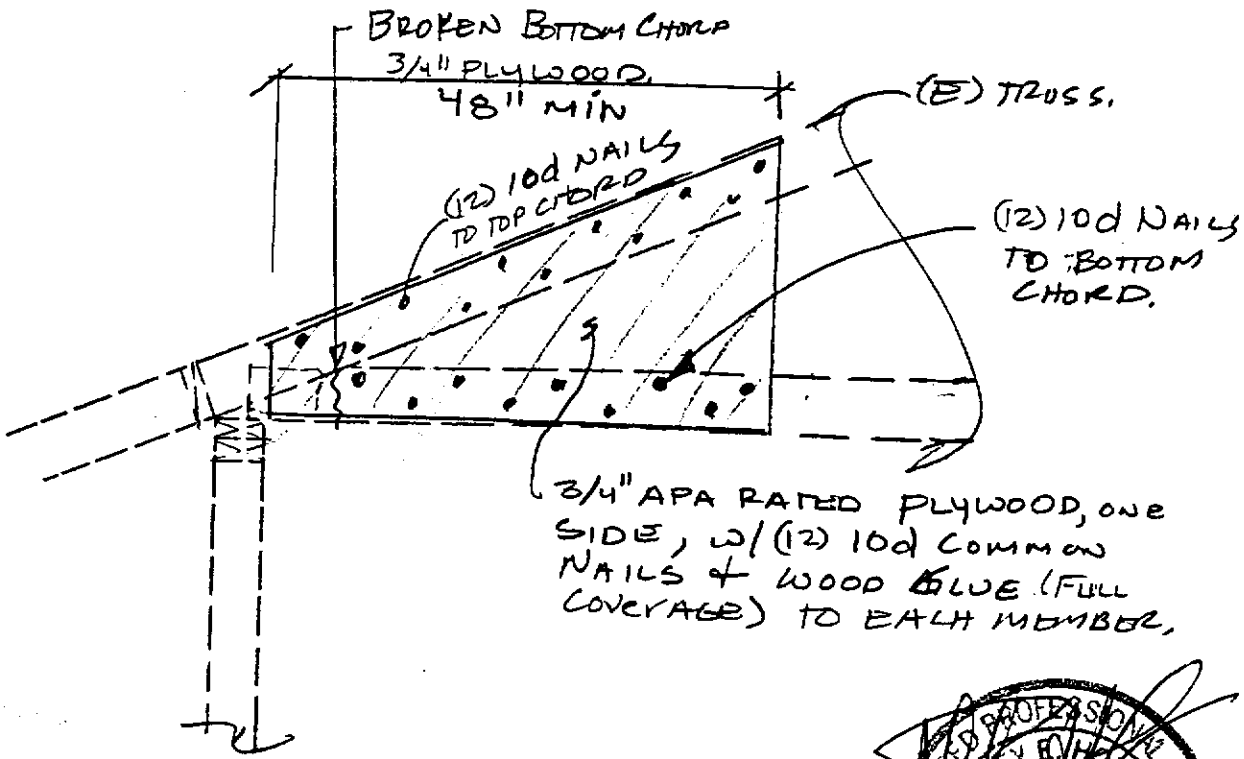 BROKEN BOTTOM CHORD
3/4" PLYWOOD.
48" MIN
(E) TRUSS.
(12) 10d NAILS
TO TOP CHORD
(12) 10d NAILS
TO BOTTOM
CHORD.
3/4" APA RATED PLYWOOD, ONE
SIDE, W/(12) 10d COMMON
NAILS + WOOD GLUE (FULL
COVERAGE) TO EACH MEMBER.
PROFESSIONAL